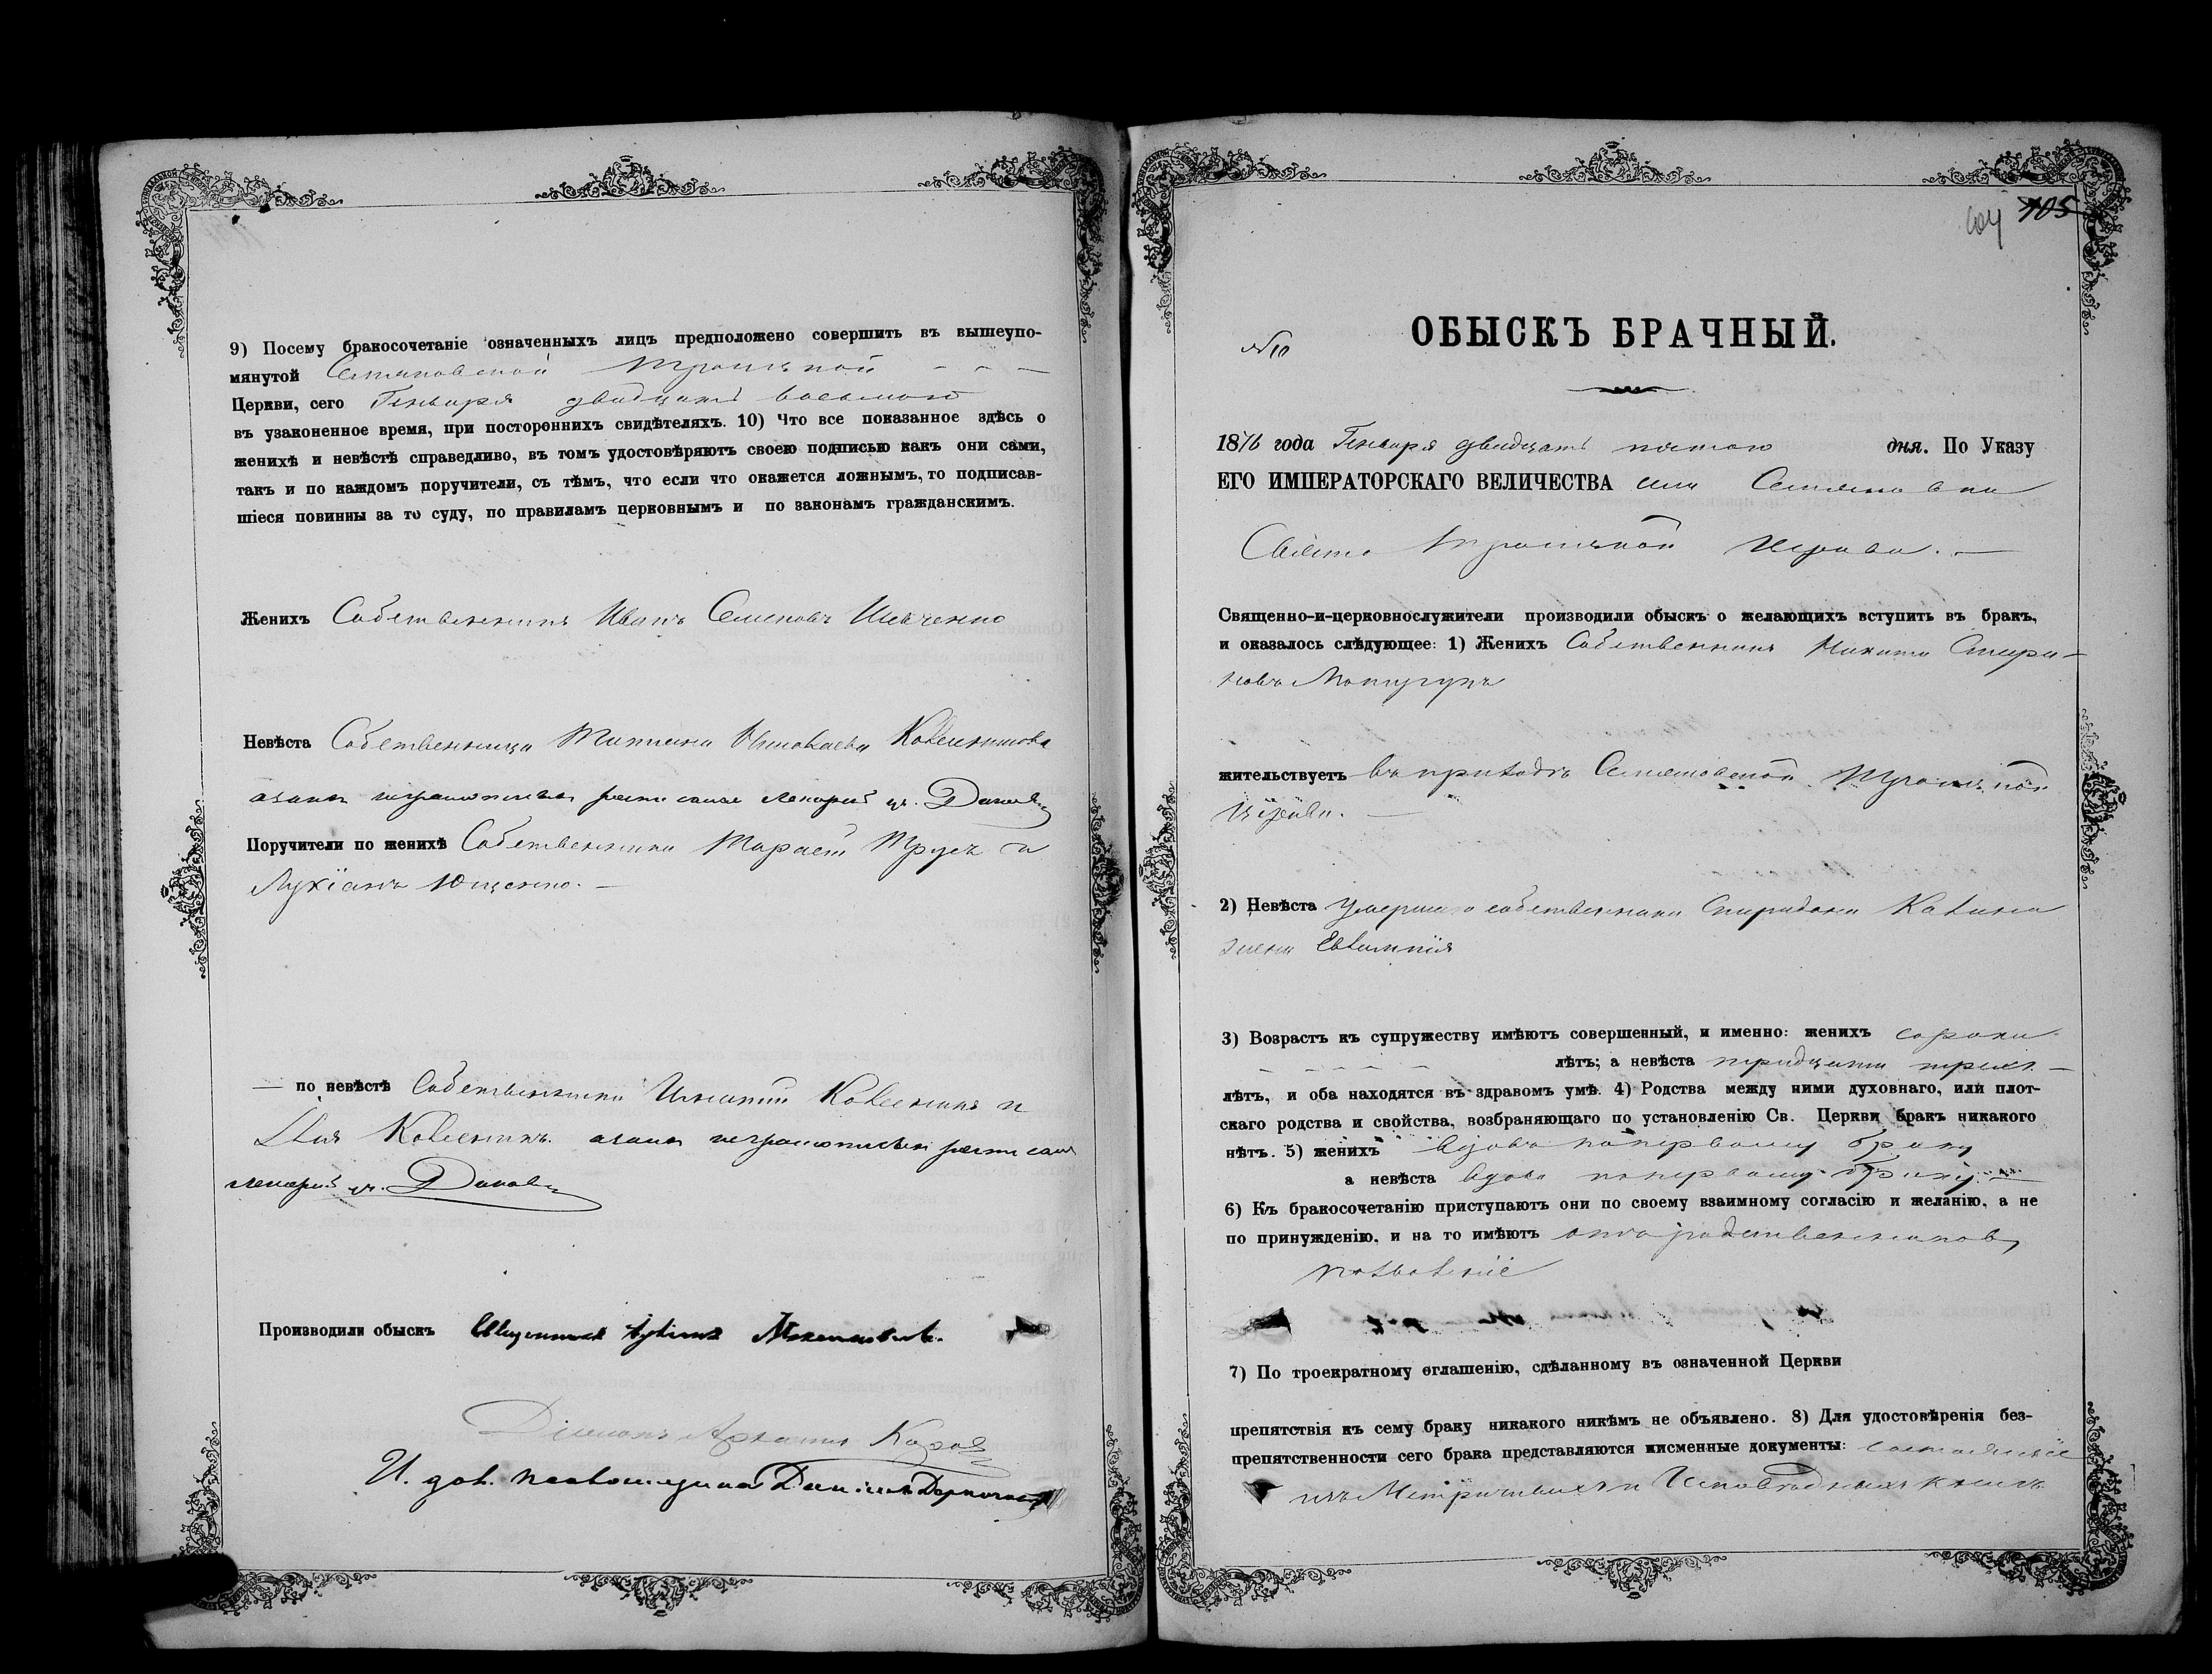 9) Посему бракосочетаніе означенныхъ лицъ предположено совершить въ вышеупо-
мянутой Семяновской Троицкой
Церкви, сего Генваря двадцать восьмого
въ узаконенное время, при постороннихъ свидѣтеляхъ. 10) Что все показанное здѣсь о
женихѣ и невѣстѣ справедливо, въ томъ удостовѣряютъ своею подписью какъ они сами,
такъ и по каждомъ поручители, съ тѣмъ, что если что окажется ложнымъ, то подписав-
шіеся повинны за то суду, по правиламъ церковнымъ и по законамъ гражданскимъ.
Женихъ Собственникъ Иванъ Семеновъ Шевченко
Невѣста Собственница Татіана
Поручители по женихѣ Собственники Тарасій Трусъ и
Лукіанъ Ющенко.
— по невѣстѣ Собственники Игнатій и
Производили обыскъ Священникъ
Діаконъ
И. дол. псаломщика
104 105
№ 10
ОБЫСКЪ БРАЧНЫЙ.
1876 года Генваря двадцать пятого дня. По Указу
ЕГО ИМПЕРАТОРСКАГО ВЕЛИЧЕСТВА
Свято Троицкой Церкви. —
Священно-и-церковнослужители производили обыскъ о желающихъ вступить въ бракъ,
и оказалось слѣдующее: 1) Женихъ Собственникъ Никита Спири-
новъ
жительствуетъ въ приходѣ Семяновской Троицкой
Церкви. —
2) Невѣста Умершаго собственника Спиридона Калина
жена Евлампія
3) Возрастъ къ супружеству имѣютъ совершенный, и именно: женихъ сорока
лѣтъ; а невѣста тридцати трехъ —
лѣтъ, и оба находятся въ здравомъ умѣ. 4) Родства между ними духовнаго, или плот-
скаго родства и свойства, возбраняющаго по установленію Св. Церкви бракъ никакого
нѣтъ. 5) женихъ вдовъ по первому браку
а невѣста вдова по первому браку. —
6) Къ бракосочетанію приступаютъ они по своему взаимному согласію и желанію, а не
по принужденію, и на то имѣютъ отъ родственниковъ
позволеніе
7) По троекратному оглашенію, сдѣланному въ означенной Церкви
препятствія къ сему браку никакого никѣмъ не объявлено. 8) Для удостовѣренія без-
препятственности сего брака представляются письменные документы: состоящіе
изъ Метрическихъ и Исповѣдныхъ книгъ